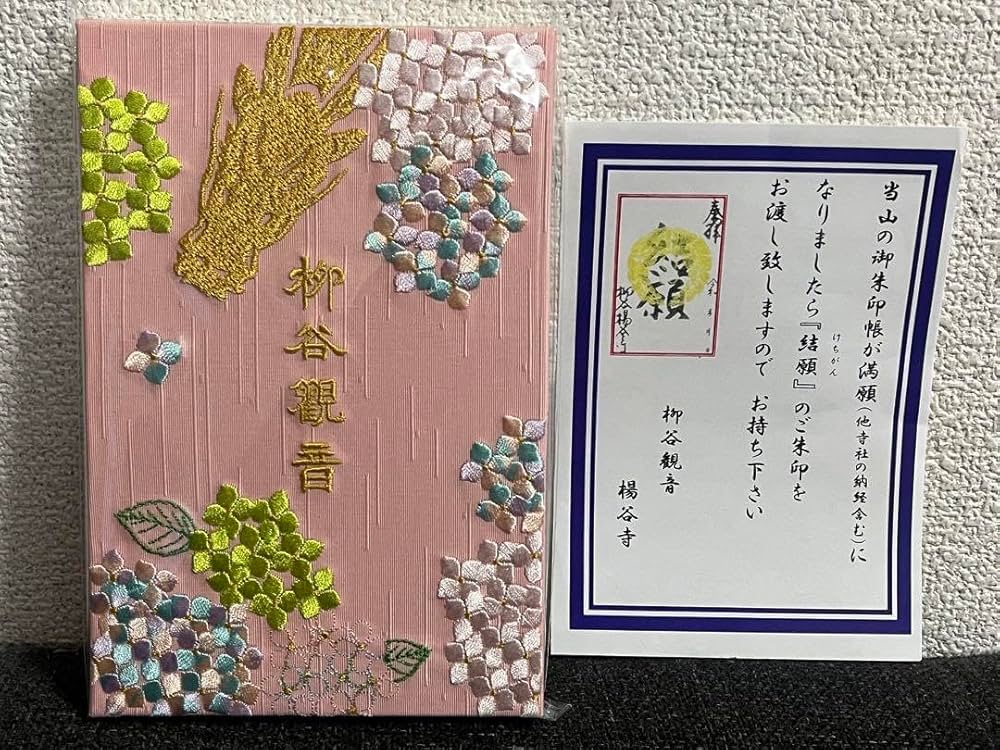 柳谷觀音
当山の御朱印帳が満願(他寺社の納経含む)に
なりましたら『結願』のご朱印を
けちがん
お渡し致しますので お持ち下さい
柳谷観音
楊谷寺
奉拝
結願
柳谷楊谷寺